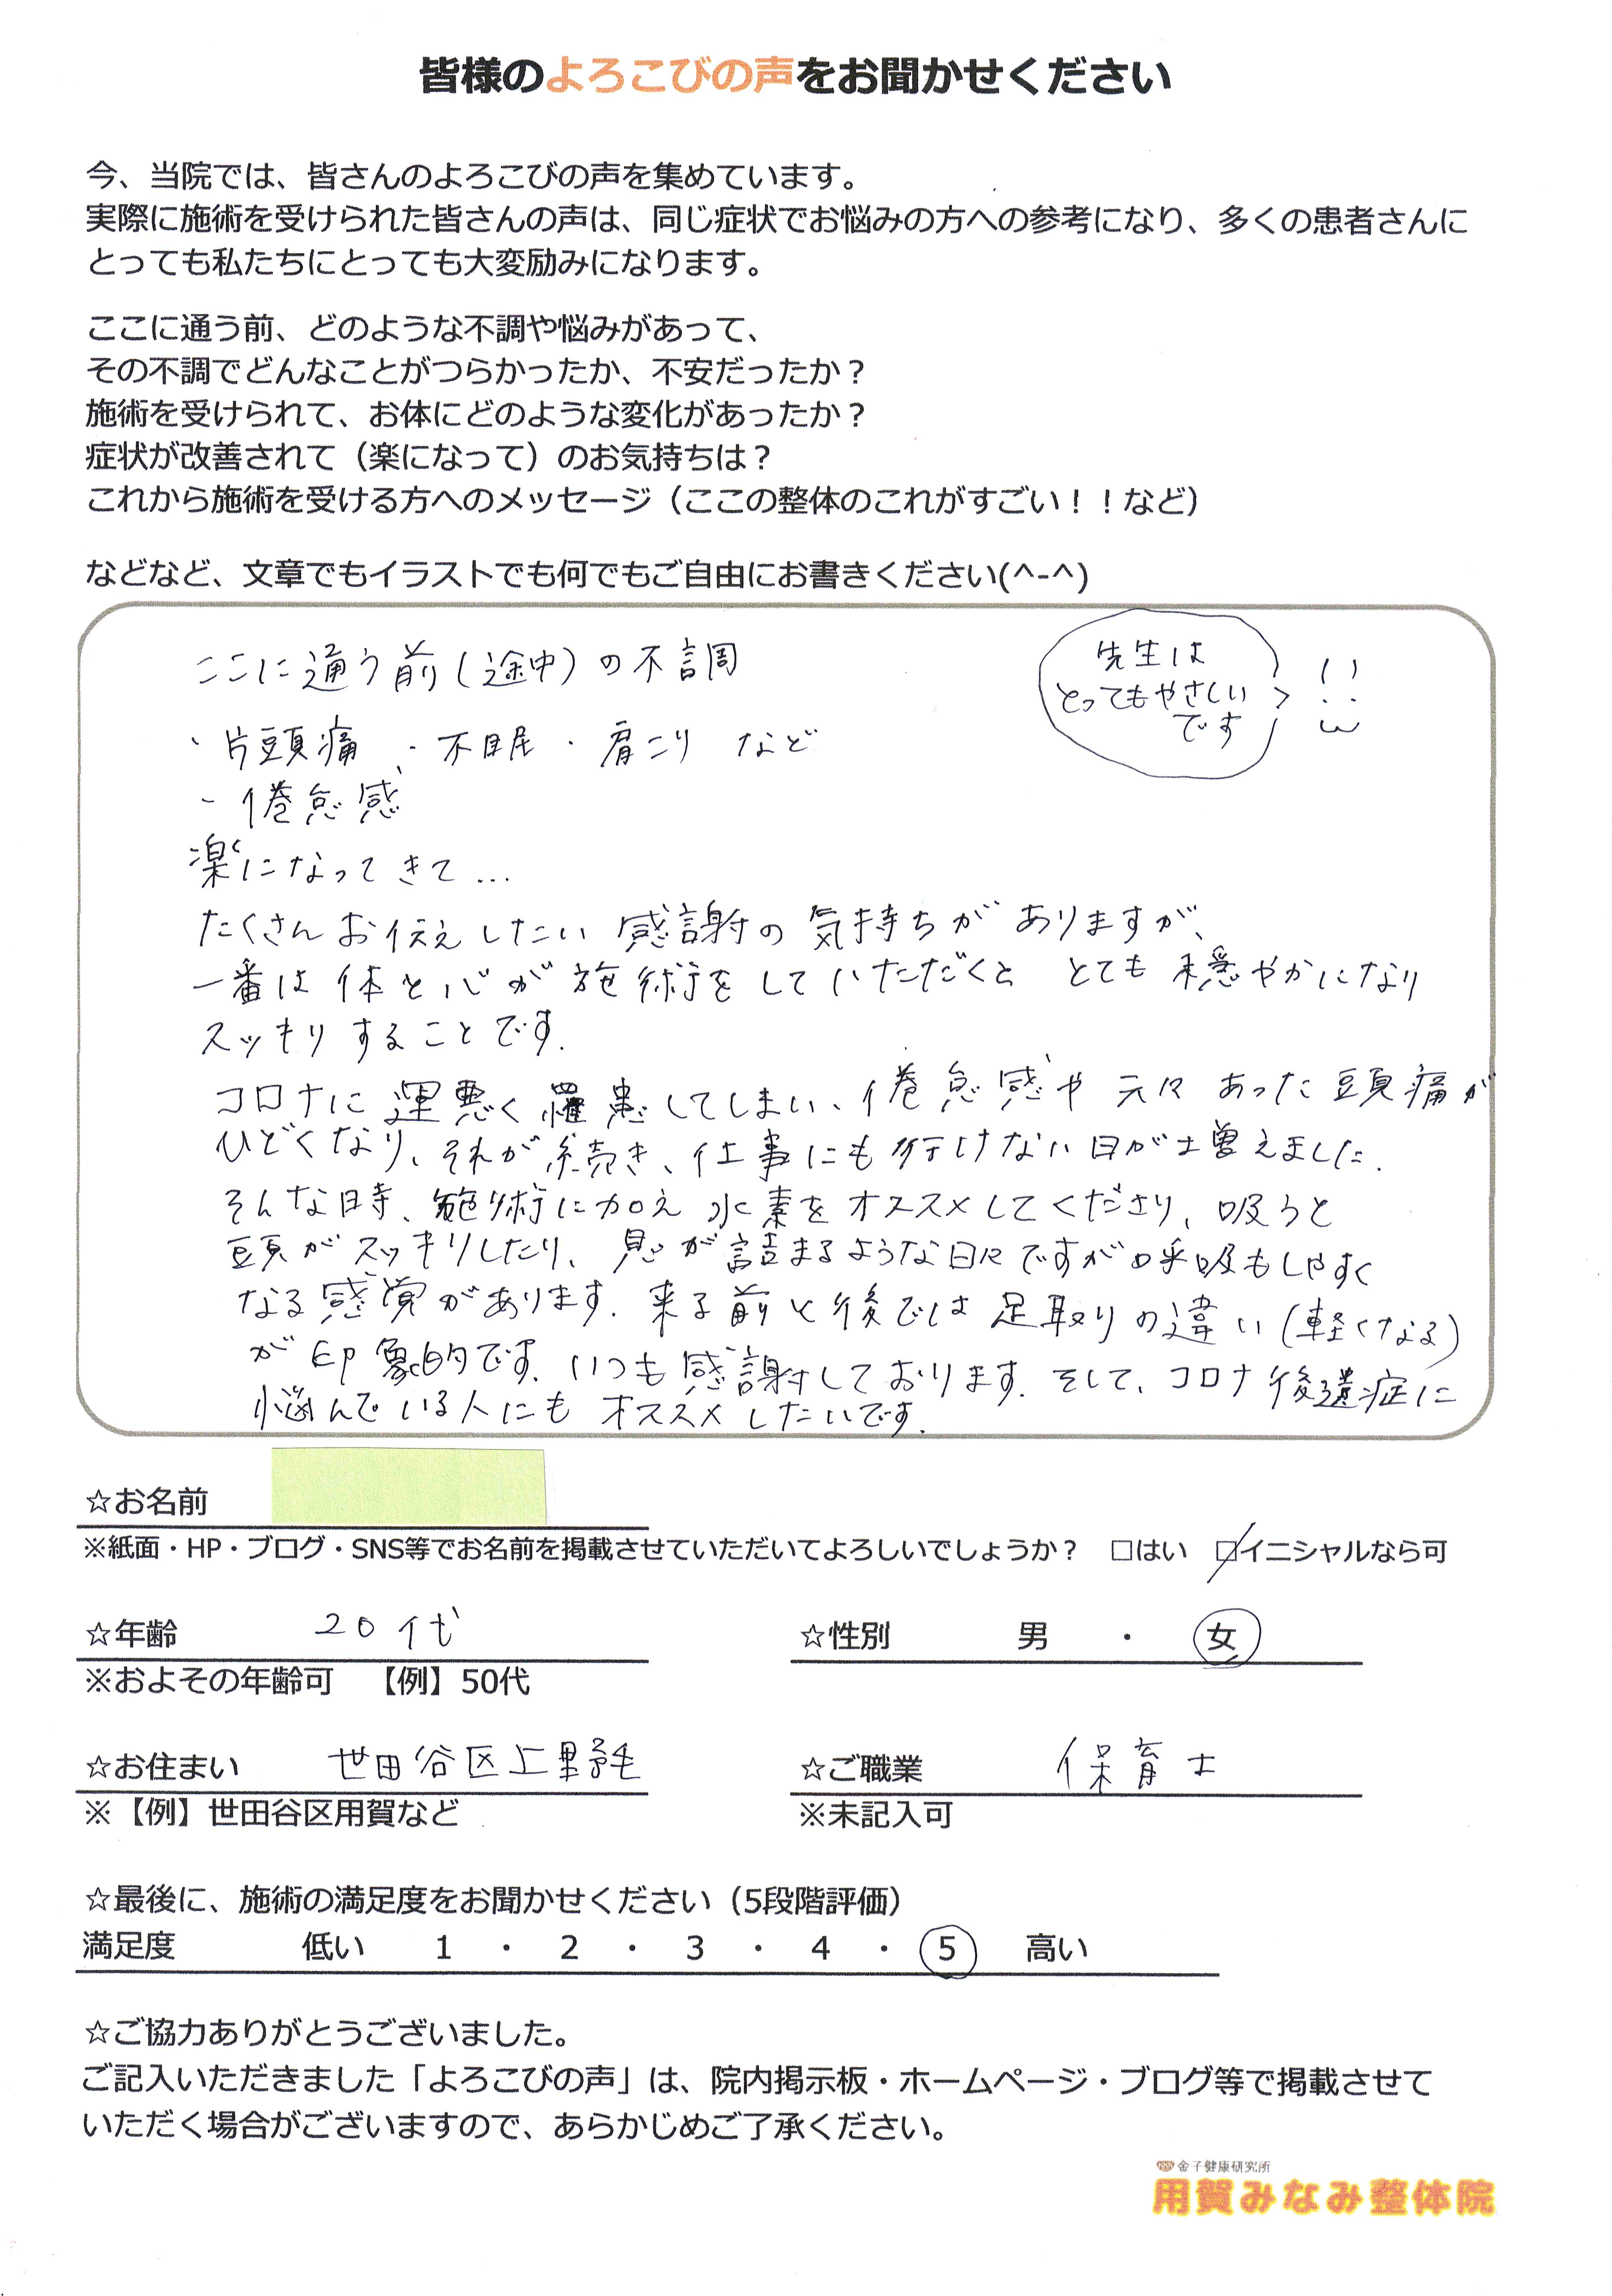 皆様のよろこびの声をお聞かせください
今、当院では、皆さんのよろこびの声を集めています。
実際に施術を受けられた皆さんの声は、同じ症状でお悩みの方への参考になり、多くの患者さんに
とっても私たちにとっても大変励みになります。
ここに通う前、どのような不調や悩みがあって、
その不調でどんなことがつらかったか、不安だったか？
施術を受けられて、お体にどのような変化があったか？
症状が改善されて（楽になって）のお気持ちは？
これから施術を受ける方へのメッセージ（ここの整体のこれがすごい！！など）
などなど、文章でもイラストでも何でもご自由にお書きください(^-^)
ここに通う前(途中)の不調
先生は
とってもやさしい
です
・片頭痛 ・不眠・肩こり など
・倦怠感
楽になってきて…
たくさんお伝えしたい感謝の気持ちがありますが、
一番は体と心が施術をしていただくと とても穏やかになり
スッキリすることです。
コロナに運悪く罹患してしまい、倦怠感や元々あった頭痛が
ひどくなり、それが続き、仕事にも行けない日が増えました。
そんな時、施術に加え水素をオススメしてくださり、吸うと
頭がスッキリしたり、息が詰まるような日々ですが呼吸もしやすく
なる感覚があります。来る前と後では足取りの違い(軽くなる)
が印象的です。いつも感謝しております。そして、コロナ後遺症に
悩んでいる人にもオススメしたいです。
☆お名前
※紙面・HP・ブログ・SNS等でお名前を掲載させていただいてよろしいでしょうか？ □はい ☑イニシャルなら可
☆年齢 20代 ☆性別 男 ・ 女
※およその年齢可 【例】50代
☆お住まい 世田谷区上野毛 ☆ご職業 保育士
※【例】世田谷区用賀など ※未記入可
☆最後に、施術の満足度をお聞かせください（5段階評価）
満足度 低い 1 ・ 2 ・ 3 ・ 4 ・ 5 高い
☆ご協力ありがとうございました。
ご記入いただきました「よろこびの声」は、院内掲示板・ホームページ・ブログ等で掲載させて
いただく場合がございますので、あらかじめご了承ください。
金子健康研究所
用賀みなみ整体院